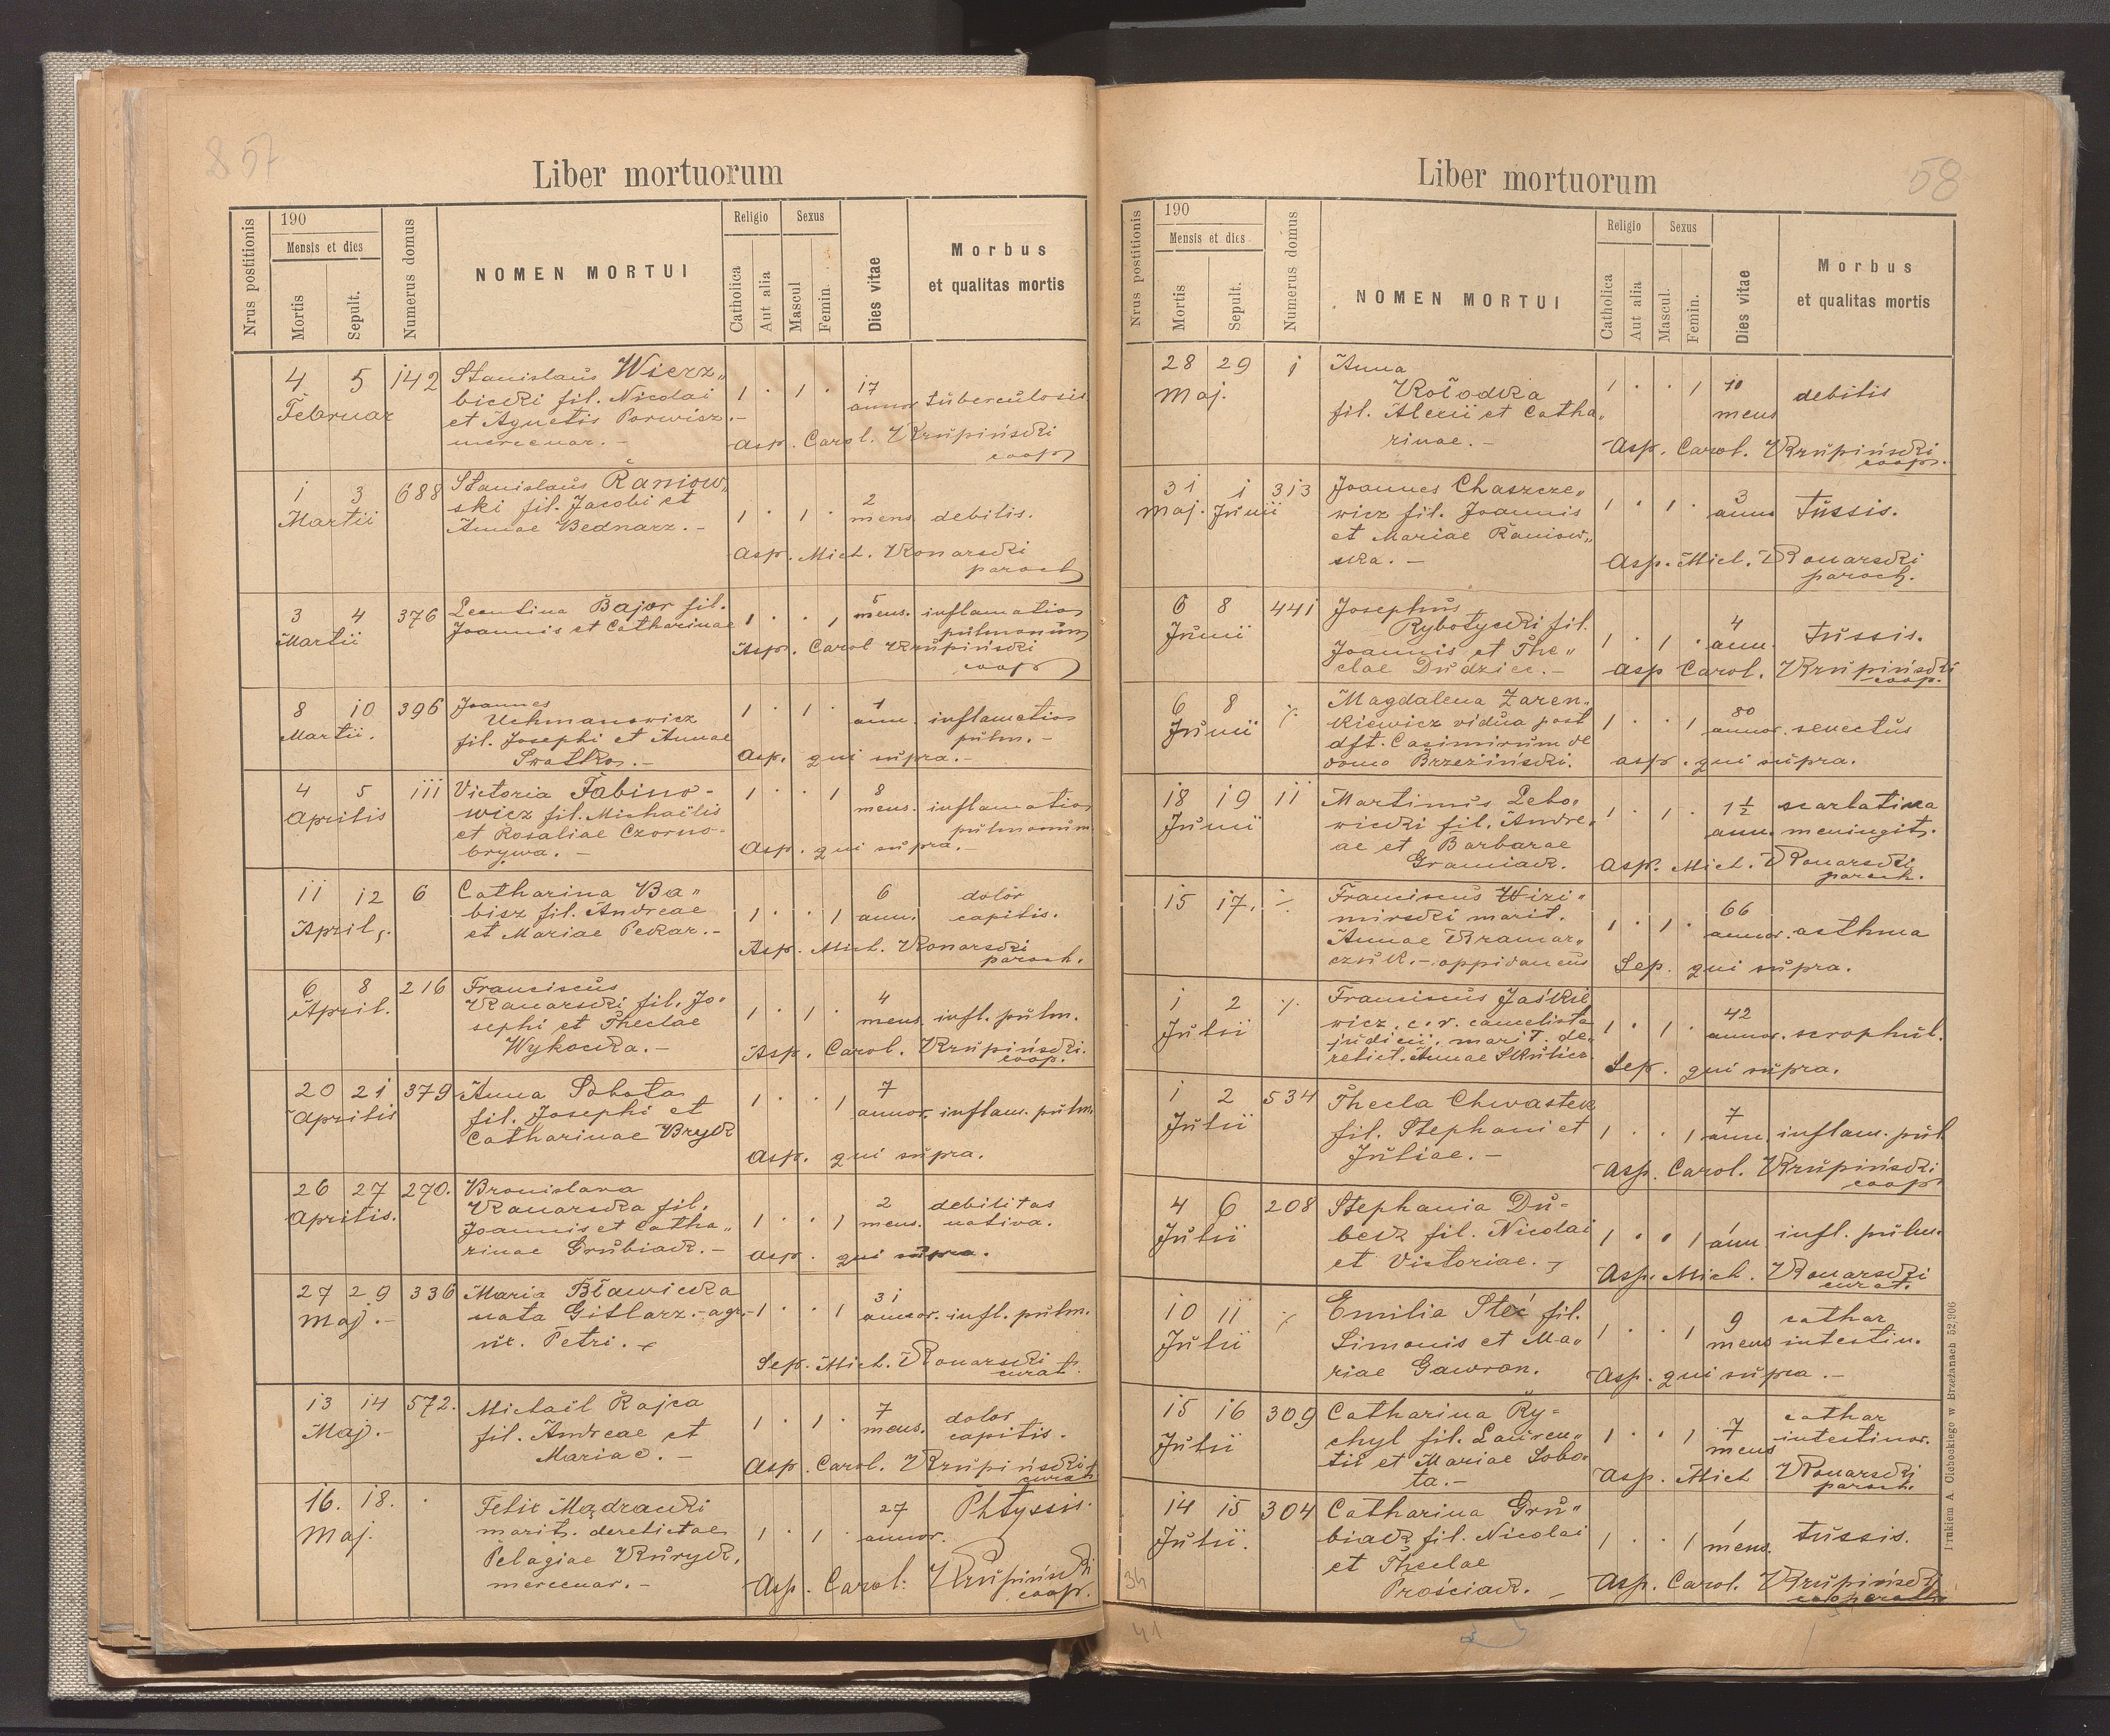 857
Liber mortuorum
Nrus postitionis
190
Mensis et dies
Mortis
Sepult.
Numerus domus
NOMEN MORTUI
Religio
Catholica
Aut alia
Sexus
Mascul
Femin.
Dies vitae
Morbus
et qualitas mortis
4 5 142 Stanislaus Wierz„
Februar bicki fil. Nicolai 1 · 1 · 17
et Agnetis Porwisz.- annor tuberculosis
mercenar.- Asp. Carol. Krupiński
coop
1 3 688 Stanislaus Raniow„
Martii ski fil. Jacobi et 1 · 1 · 2
Annae Bednarz.- mens debilis.
Asp. Mich. Konarski
paroch
3 4 376 Leontina Bajor fil. 1 · · 1 5 mens. inflamatio
Martii Joannis et Catharinae pulmonum
Asp. Carol Krupiński
coop
8 10 396 Joannes
Martii. Uchmanowicz 1 · 1 · 1 ann. inflamatio
fil. Josephi et Annae pulm.-
Swatko.- Asp. qui supra.-
4 5 111 Victoria Fabino- 1 · · 1 8
Aprilis wicz fil. Michaëlis mens. inflamatio
et Rosaliae Czorno- pulmonum
brywa.- Asp. qui supra.-
11 12 6 Catharina Ba„ 6 dolor
April. bisz fil. Andreae 1 · · 1 ann. capitis.
et Mariae Pekar.-
Asp. Mich. Konarski
paroch.
6 8 216 Franciscus
April. Kanarski fil. Jo- 1 · 1 · 4
sephi et Theclae mens. infl. pulm.
Wykocka.- Asp. Carol. Krupiński.
coop.
20 21 379 Anna Sobota 7
Aprilis fil. Josephi et 1 · · 1 annor. inflam. pulm.
Catharinae Bryk
Asp. qui supra.
26 27 270. Bronislava
Aprilis. Kanarska fil. 2 debilitas
Joannis et Catha„ 1 · · 1 mens. nativa.
rinae Grubiak.- Asp. qui supra.
27 29 336 Maria Bławicka 31
Maj.- nata Gitlarz.-agr.- 1 · · 1 annor. infl. pulm.
ux. Petri.
Sep. Mich. Konarski
curat.
13 14 572. Michaël Rajca 7 dolor
Maj.- fil. Andreae et 1 · 1 · mens. capitis.
Mariae.- Asp. Carol. Krupiński
curat
16. 18. · Felix Mądracki 27 Phtyssis.
Maj. marit. derelictae 1 · 1 · annor.
Pelagiae Kuryk.
mercenar.- Asp. Carol: Krupiński
coop.
58
Liber mortuorum
Nrus postitionis
190
Mensis et dies
Mortis
Sepult.
Numerus domus
NOMEN MORTUI
Religio
Catholica
Aut alia
Sexus
Mascul.
Femin.
Dies vitae
Morbus
et qualitas mortis
28 29 1 Anna
Maj. Kołodka 1 · · 1 10 debilis
fil. Alexii et Catha„ mens
rinae.- Asp. Carol. Krupiński
coop.
31 1 313 Joannes Chaszcze„
Maj. Junii wicz fil. Joannis 1 · 1 · 3 ann tussis.
et Mariae Raniow„
ska.- Asp. Mich. Konarski
paroch.
6 8 441 Josephus
Junii Rybotycki fil. 4
Joannis et The„ 1 · 1 · ann. tussis.
clae Dudziec.- Asp Carol. Krupiński
coop.
6 8 ·/. Magdalena Zaren„
Junii kiewicz vidua post 1 · · 1 80 annor. senectus
dft. Casimirum de
domo Brzeziński. asp. qui supra.
18 19 11 Martinus Lebo„
Junii wicki fil. Andre„ 1 · 1 · 1½ scarlatina
ae et Barbarae ann. meningit.
Graniak. Asp. Mich. Konarski
paroch.
15 17. ·/. Franciscus Wizi„
mirski marit. 1 · 1 · 66
Annae Kramar„ annor. asthma
czuk.- oppidaneus Sep. qui supra.
1 2 ·/. Franciscus Jaśkie
Julii wicz. c. r. cancelista 1 · 1 · 42
judicii. marit. de„ annor. scrophul.
relict. Annae Skulicz. Sep. qui supra.
1 2 534 Thecla Chwastek
Julii fil. Stephani et 1 · · 1 7 ann. inflam. pul
Juliae.- Asp. Carol. Krupiński
coop
4 6 208 Stephania Du-
Julii beck fil. Nicolai 1 · · 1 1 ann infl. pulm.
et Victoriae.
Asp. Mich. Konarski
curat.
10 11 ·/. Emilia Steć fil. 9 cathar
Julii Simonis et Ma„ 1 · · 1 mens intestin.
riae Gawron. Asp. qui supra.-
15 16 309 Catharina Ry- cathar
Julii chyl fil. Lauren„ 1 · · 1 7 mens intestinor.
tii et Mariae Sobo„
ta.- Asp. Mich Konarski
paroch.
14 15 304 Catharina Gru„
Julii. biak fil. Nicolai 1 · · 1 1 mens. tussis.
et Theclae
Prościak.- Asp. Carol. Krupiński
cooperator
34
41
Drukiem A. Cichockiego w Brzeżanach 52,906